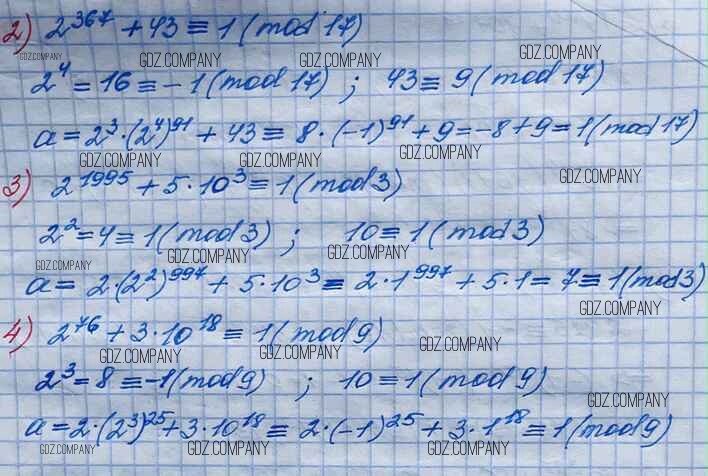 2) 2^367 + 43 ≡ 1 (mod 17)
GDZ.COMPANY GDZ.COMPANY GDZ.COMPANY GDZ.COMPANY
2^4 = 16 ≡ -1 (mod 17) ; 43 ≡ 9 (mod 17)
GDZ.COMPANY GDZ.COMPANY
a = 2^3 · (2^4)^91 + 43 ≡ 8 · (-1)^91 + 9 = -8 + 9 = 1 (mod 17)
GDZ.COMPANY GDZ.COMPANY GDZ.COMPANY
3) 2^1995 + 5 · 10^3 ≡ 1 (mod 3)
GDZ.COMPANY
2^2 = 4 ≡ 1 (mod 3) ; 10 ≡ 1 (mod 3)
GDZ.COMPANY GDZ.COMPANY GDZ.COMPANY
a = 2 · (2^2)^997 + 5 · 10^3 ≡ 2 · 1^997 + 5 · 1 = 7 ≡ 1 (mod 3)
GDZ.COMPANY
4) 2^76 + 3 · 10^18 ≡ 1 (mod 9)
GDZ.COMPANY GDZ.COMPANY GDZ.COMPANY
2^3 = 8 ≡ -1 (mod 9) ; 10 ≡ 1 (mod 9)
GDZ.COMPANY
a = 2 · (2^3)^25 + 3 · 10^18 ≡ 2 · (-1)^25 + 3 · 1^18 ≡ 1 (mod 9)
GDZ.COMPANY GDZ.COMPANY GDZ.COMPANY GDZ.COMPANY